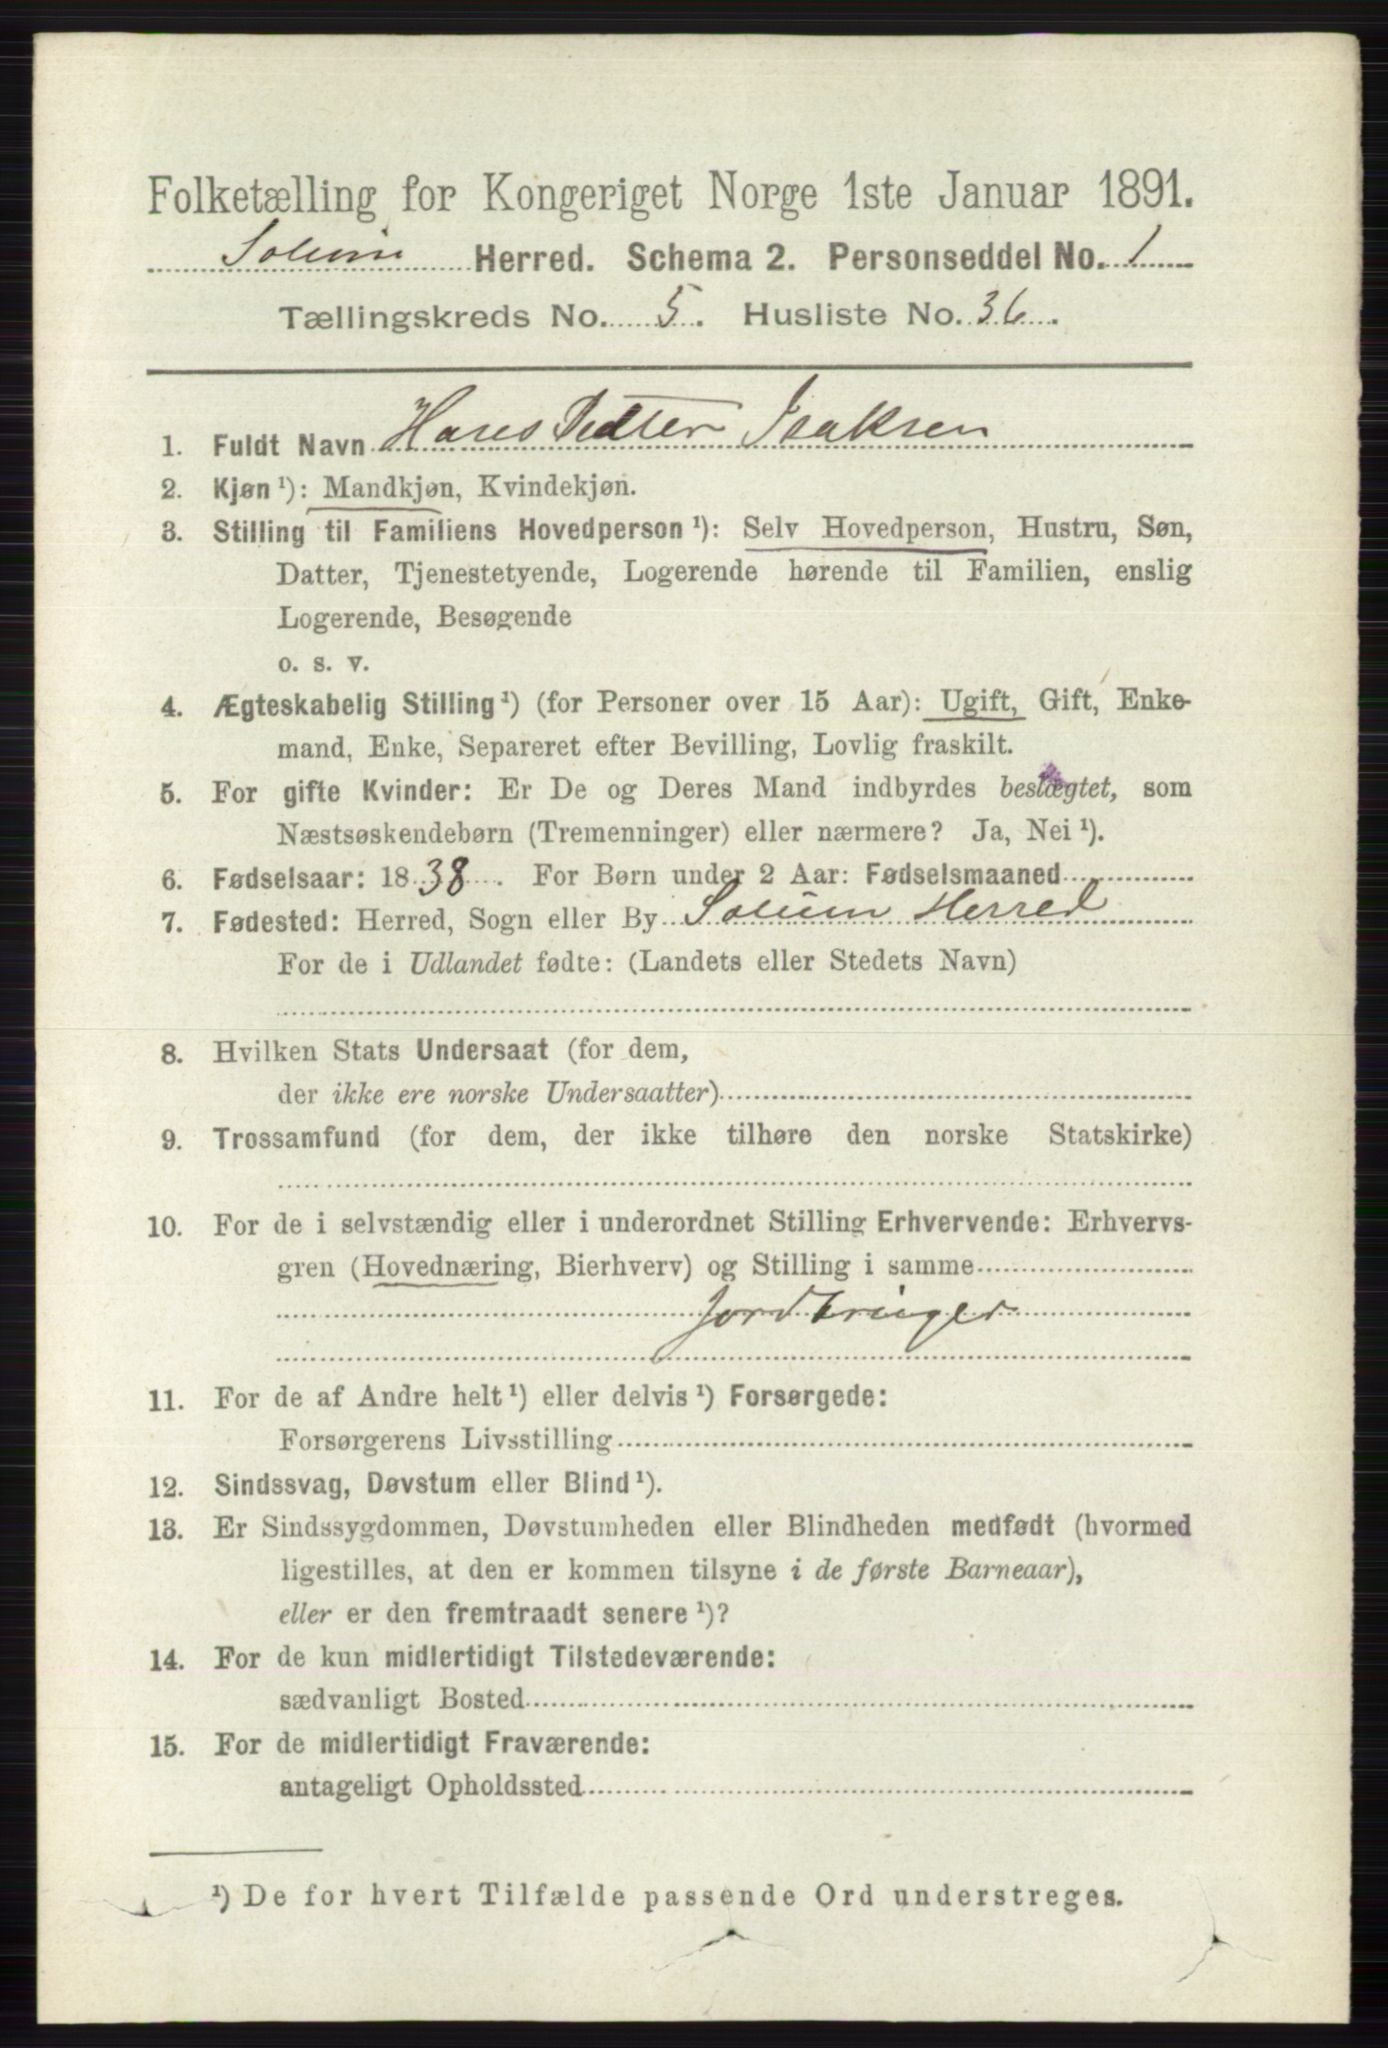 Folketælling for Kongeriget Norge 1ste Januar 1891.
Solum Herred. Schema 2. Personseddel No. 1
Tællingskreds No. 5. Husliste No. 36.
1. Fuldt Navn Hans Petter Isaksen
2. Kjøn ¹): Mandkjøn, Kvindekjøn.
3. Stilling til Familiens Hovedperson ¹): Selv Hovedperson, Hustru, Søn,
Datter, Tjenestetyende, Logerende hørende til Familien, enslig
Logerende, Besøgende
o. s. v.
4. Ægteskabelig Stilling ¹) (for Personer over 15 Aar): Ugift, Gift, Enke-
mand, Enke, Separeret efter Bevilling, Lovlig fraskilt.
5. For gifte Kvinder: Er De og Deres Mand indbyrdes beslægtet, som
Næstsøskendebørn (Tremenninger) eller nærmere? Ja, Nei ¹).
6. Fødselsaar: 1838. For Børn under 2 Aar: Fødselsmaaned
7. Fødested: Herred, Sogn eller By Solum Herred
For de i Udlandet fødte: (Landets eller Stedets Navn)
8. Hvilken Stats Undersaat (for dem,
der ikke ere norske Undersaatter)
9. Trossamfund (for dem, der ikke tilhøre den norske Statskirke)
10. For de i selvstændig eller i underordnet Stilling Erhvervende: Erhvervs-
gren (Hovednæring, Bierhverv) og Stilling i samme
Jordbruger
11. For de af Andre helt ¹) eller delvis ¹) Forsørgede:
Forsørgerens Livsstilling
12. Sindssvag, Døvstum eller Blind ¹).
13. Er Sindssygdommen, Døvstumheden eller Blindheden medfødt (hvormed
ligestilles, at den er kommen tilsyne i de første Barneaar),
eller er den fremtraadt senere ¹)?
14. For de kun midlertidigt Tilstedeværende:
sædvanligt Bosted
15. For de midlertidigt Fraværende:
antageligt Opholdssted
¹) De for hvert Tilfælde passende Ord understreges.